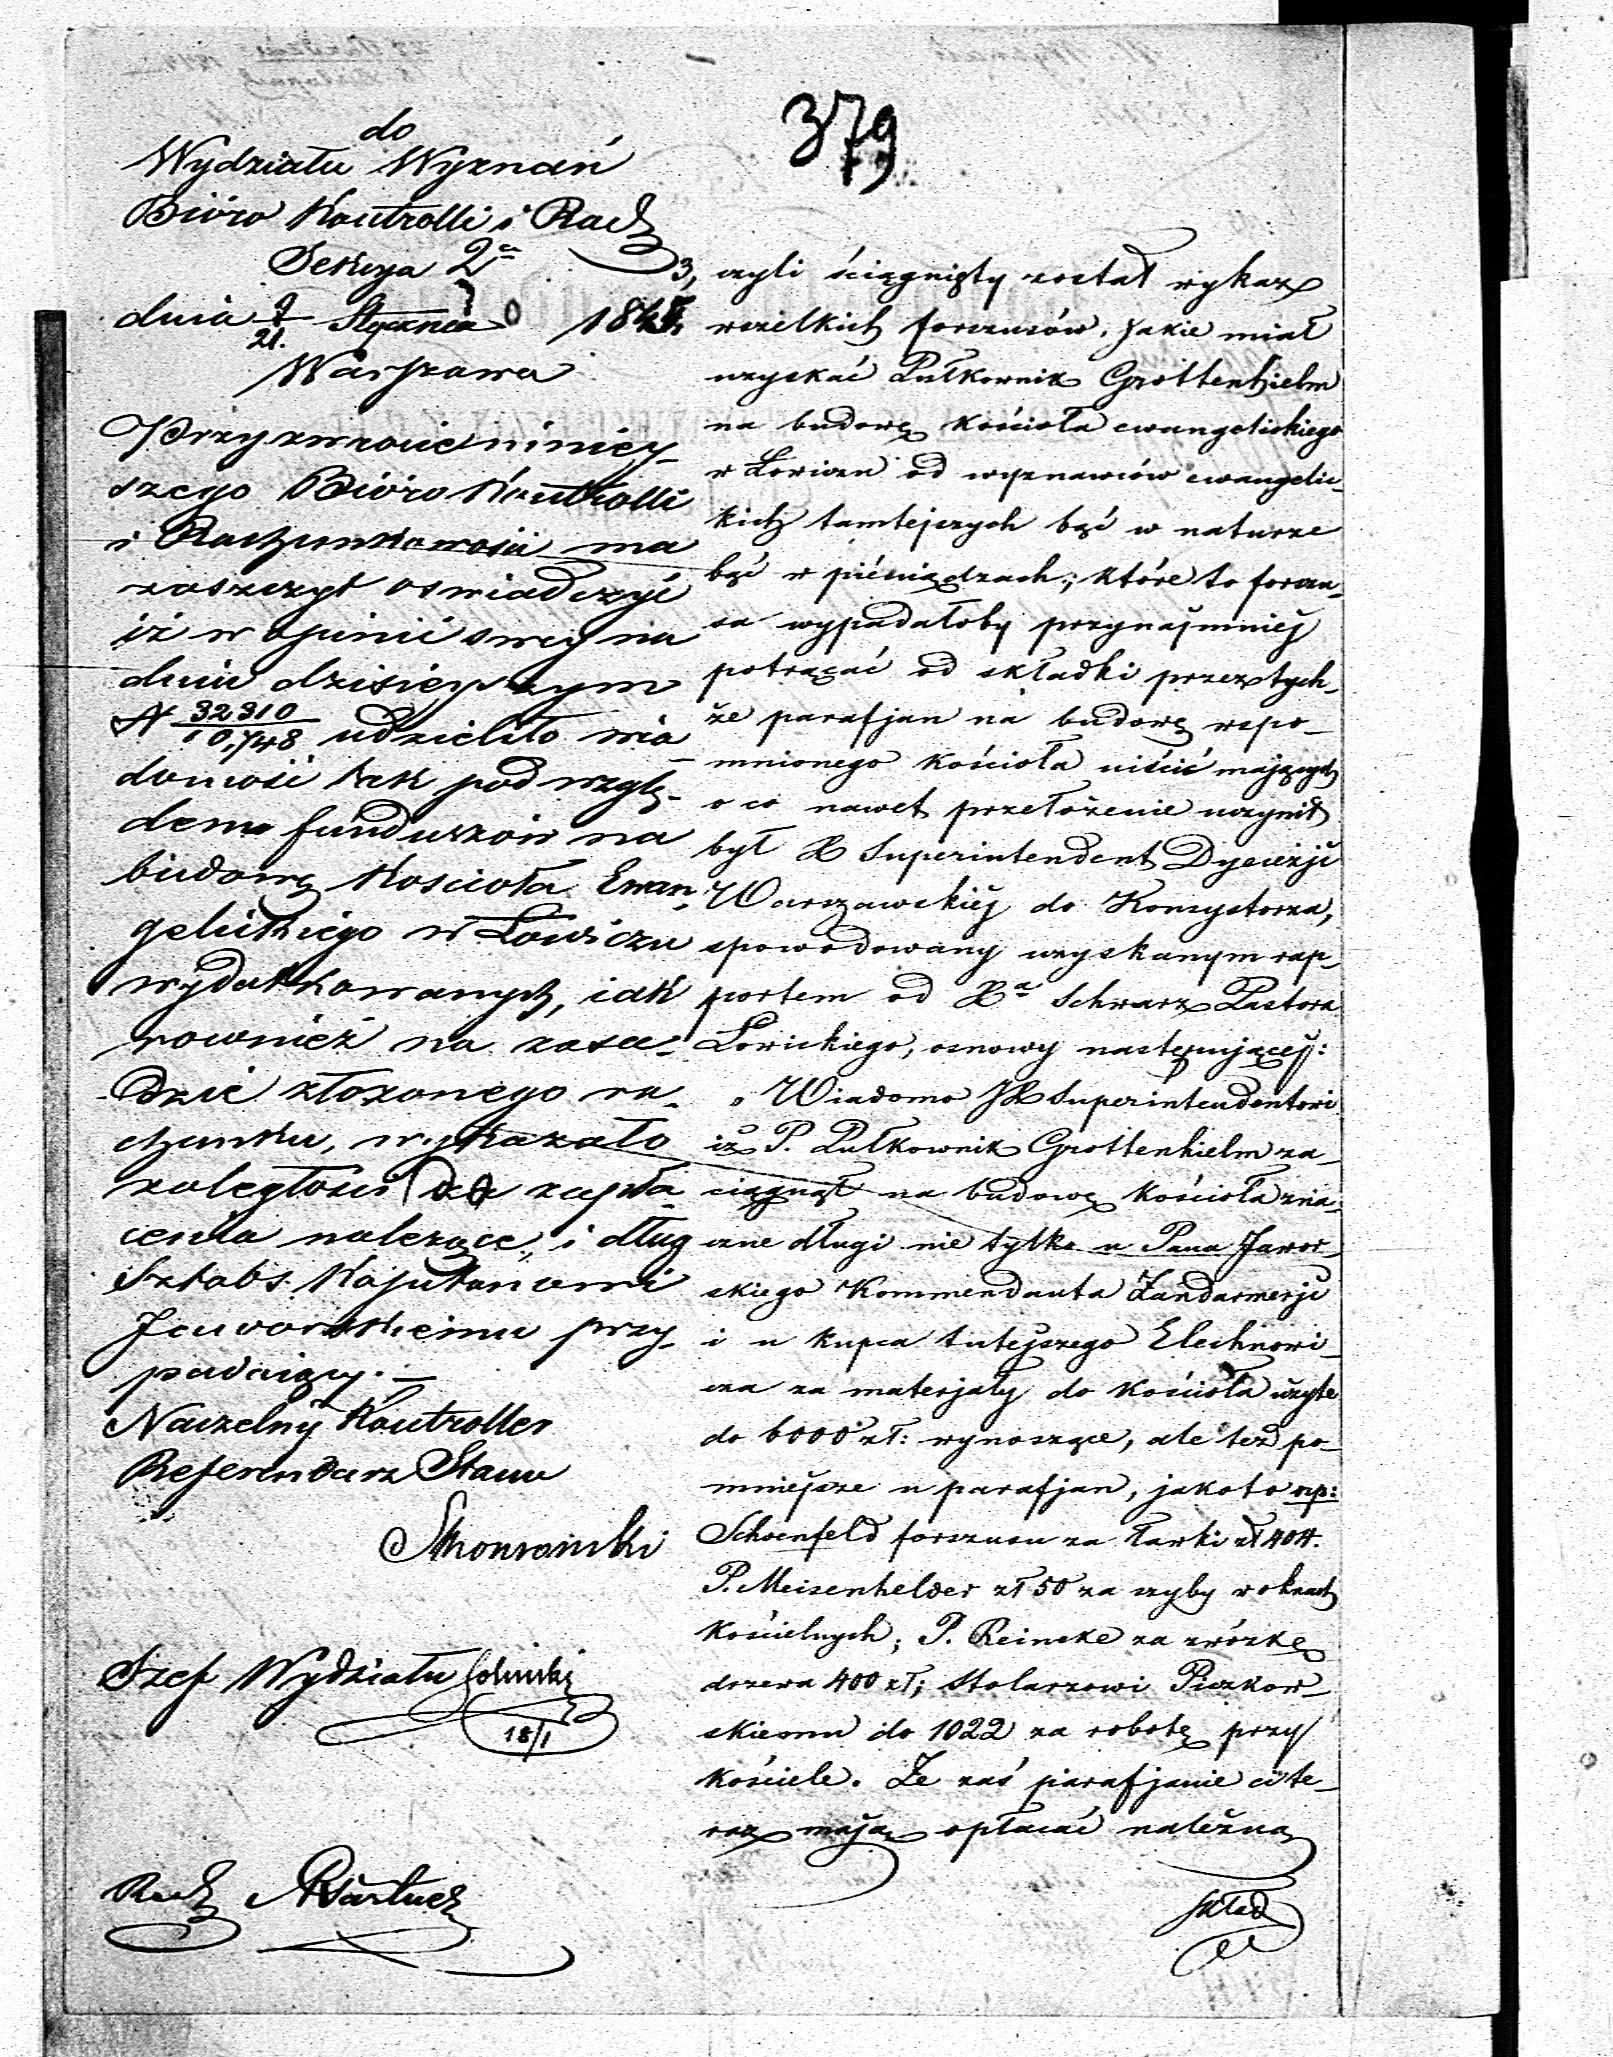 379
do
Wydziału Wyznań
Bióro Kontrolli i Rach
Sekcya 2ª
dnia 9/21. Stycznia 184
Warszawa
Przy zwrocie niniey-
szego Bióro Kontrolli
i Rachunkowości ma
zaszczyt oswiadczyć
iż w opinii swey na
dniu dzisieyszym
N 32310/10,748 udzieliło wia-
domość tak pod wzglę-
dem funduszów na
budowę Kościoła Ewan-
gelickiego w Łowiczu
wydatkowanych, iak
rownież na zasa-
dzie złożonego ra-
chunku, wykazało
zaległości do zapła-
cenia należące, i dług
Sztabs Kapitanowi
Jaworskiemu przy-
padaiący. —
Naczelny Kontroller
Referendarz Stanu
Szef Wydziału
18/I
Rach
3, czyli ściągnięty został wykaz
wszelkich forszusów, jakie miał
uzyskać Pułkownik Grottenhielm
na budowę kościoła ewangelickiego
w Łowiczu od wyznawców ewangelic-
kich tamtejszych bąć w naturze
bąć w pieniądzach; które to forszu-
sa wypadałoby przynajmniej
potrącać od składki przez tych-
że parafjan na budowę wspo-
mnionego kościoła uiścić mających
o co nawet przełożenie uczynił
był X Superintendent Dyecezji
Warszawskiej do Konsystorza,
spowodowany uzyskanym rap-
portem od Xª Schwarz Pastora
Łowickiego, osnowy następującej:
„Wiadomo JX Superintendentowi
iż P. Pułkownik Grottenhielm za-
ciągnął na budowę kościoła zna-
czne długi nie tylko u Pana Jawor-
skiego Kommendanta Żandarmerji
i u kupca tutejszego Elechnowi-
cza za materjały do kościoła użyte
do 6000 zł: wynoszące, ale też po-
mniejsze u parafjan, jako to np:
Schoenfeld forszusu za ławki zł 404.
P. Meisenhelder zł 50 za szyby w oknach
kościelnych; P. Reincke za zwózkę
drzewa 400 zł; stolarzowi Piczkow-
skiemu do 1022 za robotę przy
kościele. Że zaś parafjanie ci te-
raz mają opłacać należną
skład